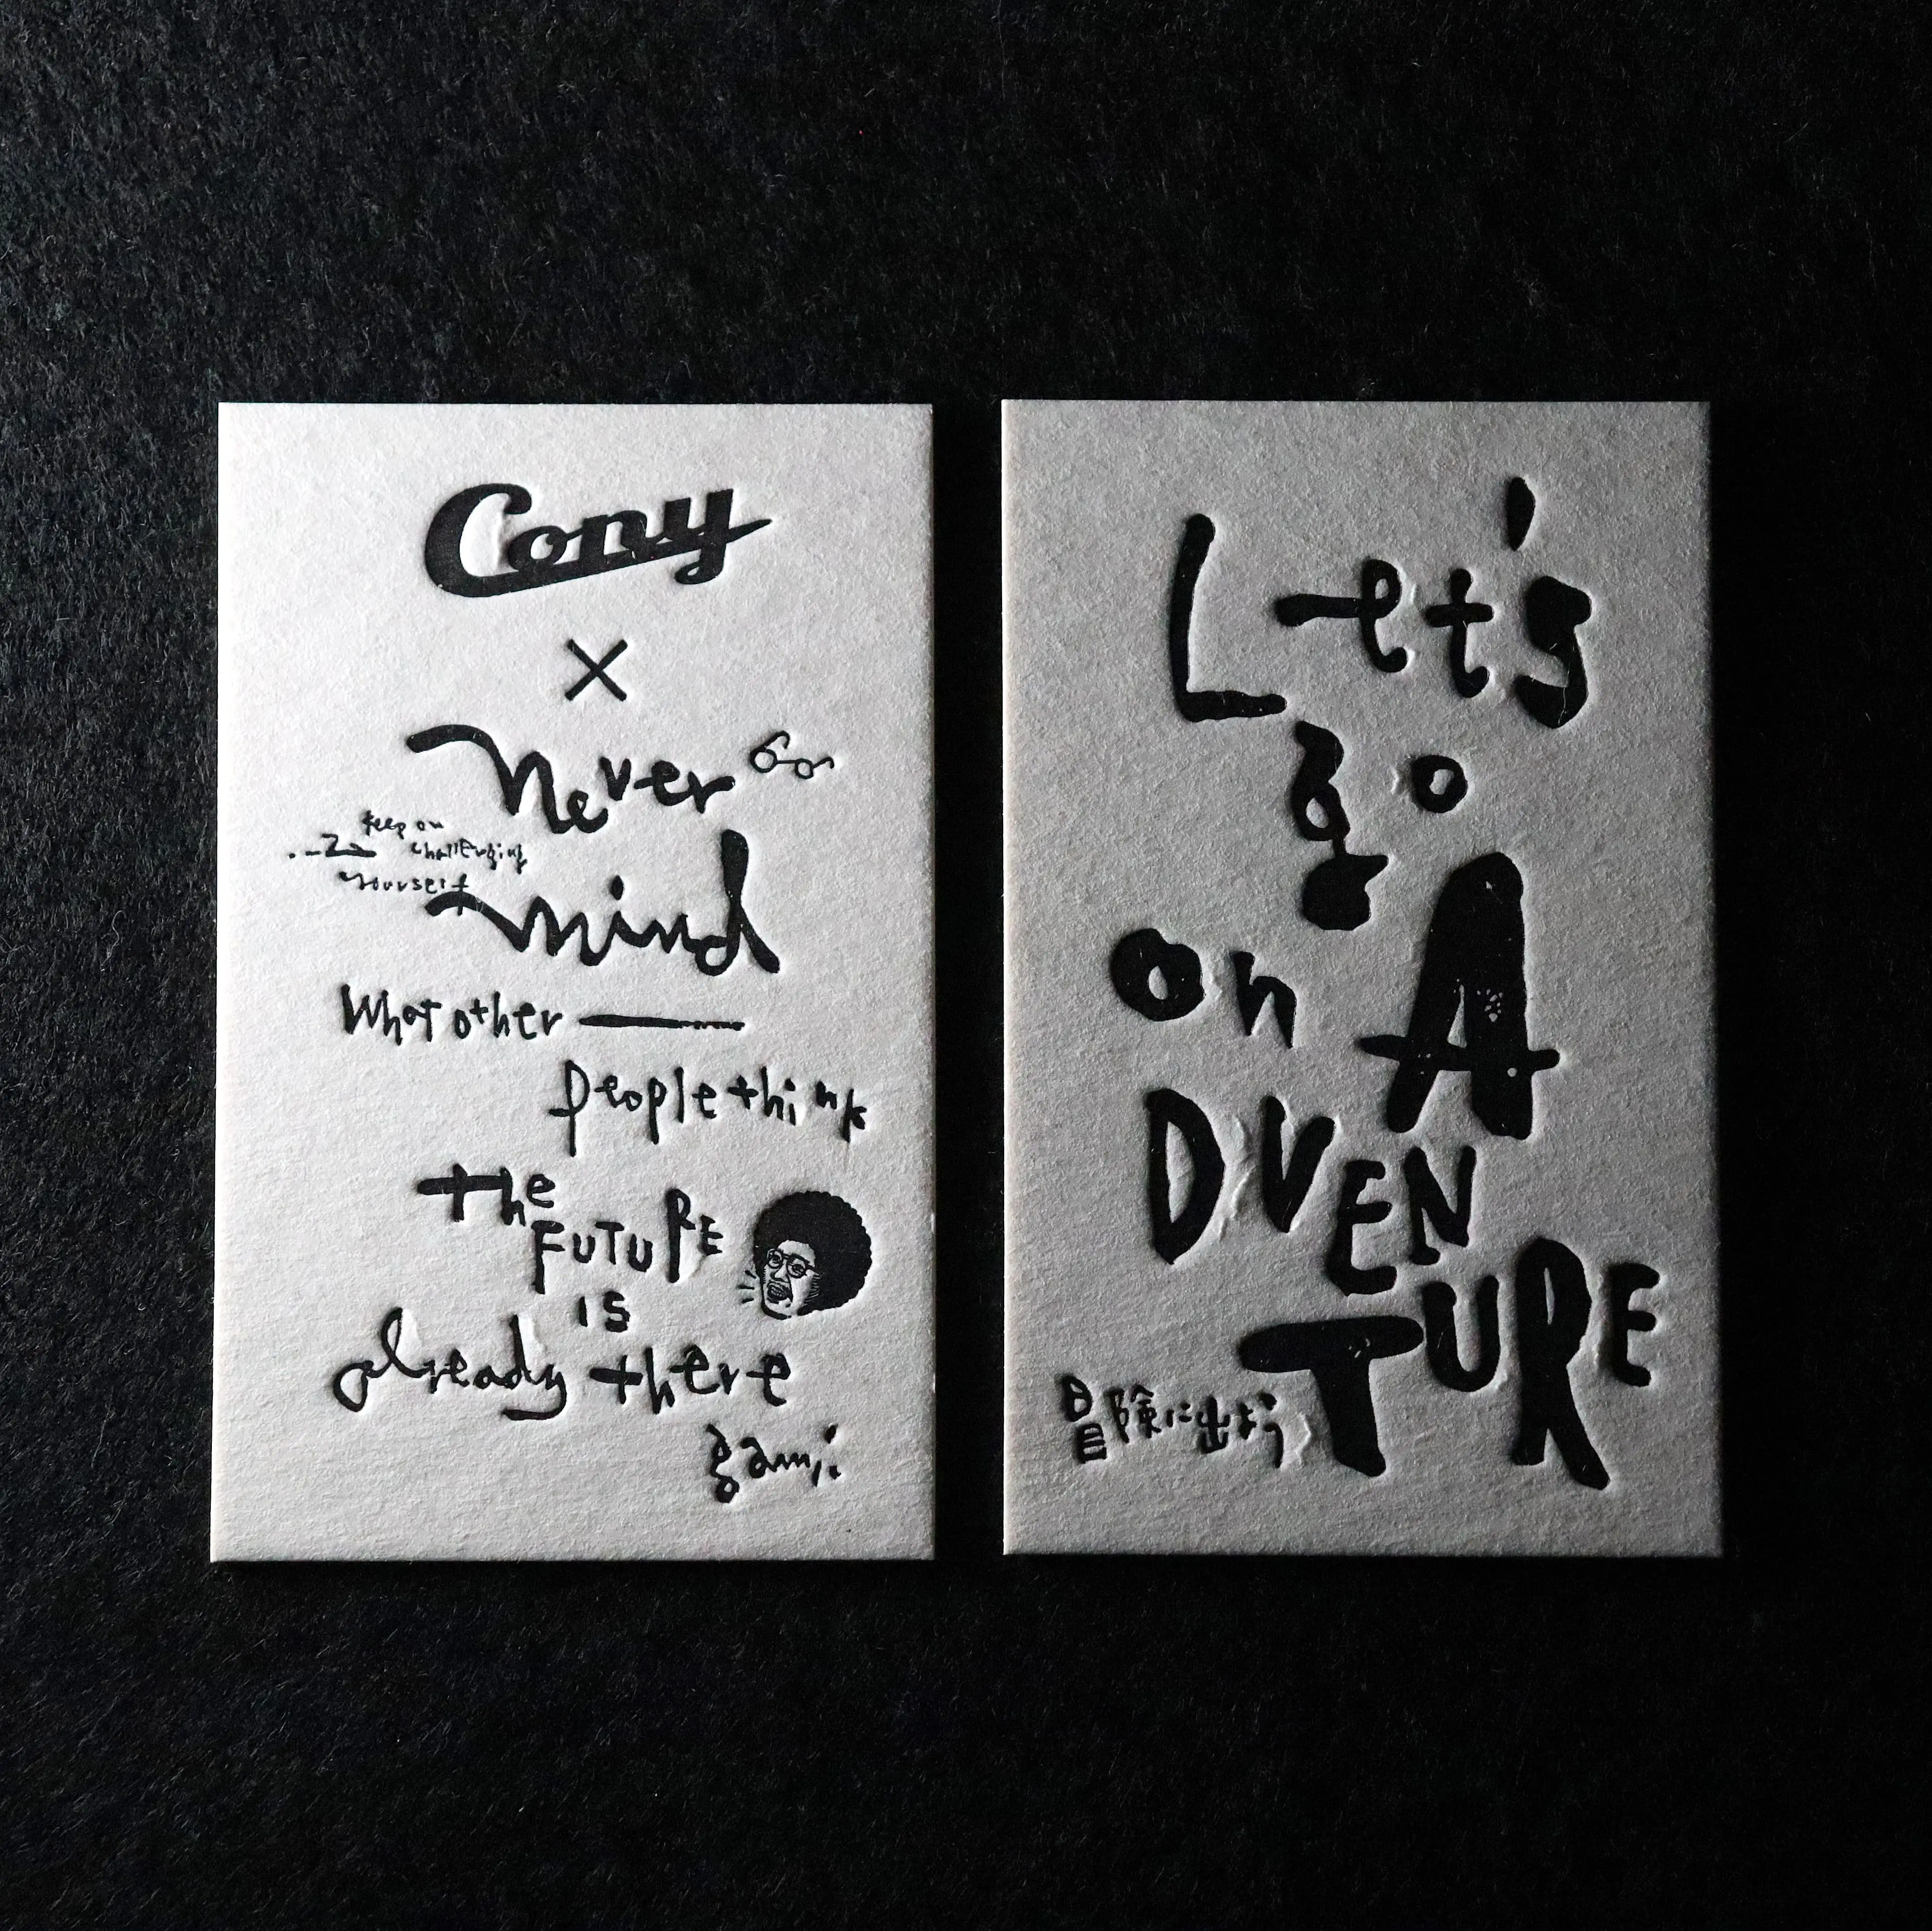 Cony
×
Never
keep on
challenging
yourself
mind
What other
people think
the
FUTURE
is
already there
gami
Let's
go
on A
DVEN
TURE
冒険に出よう